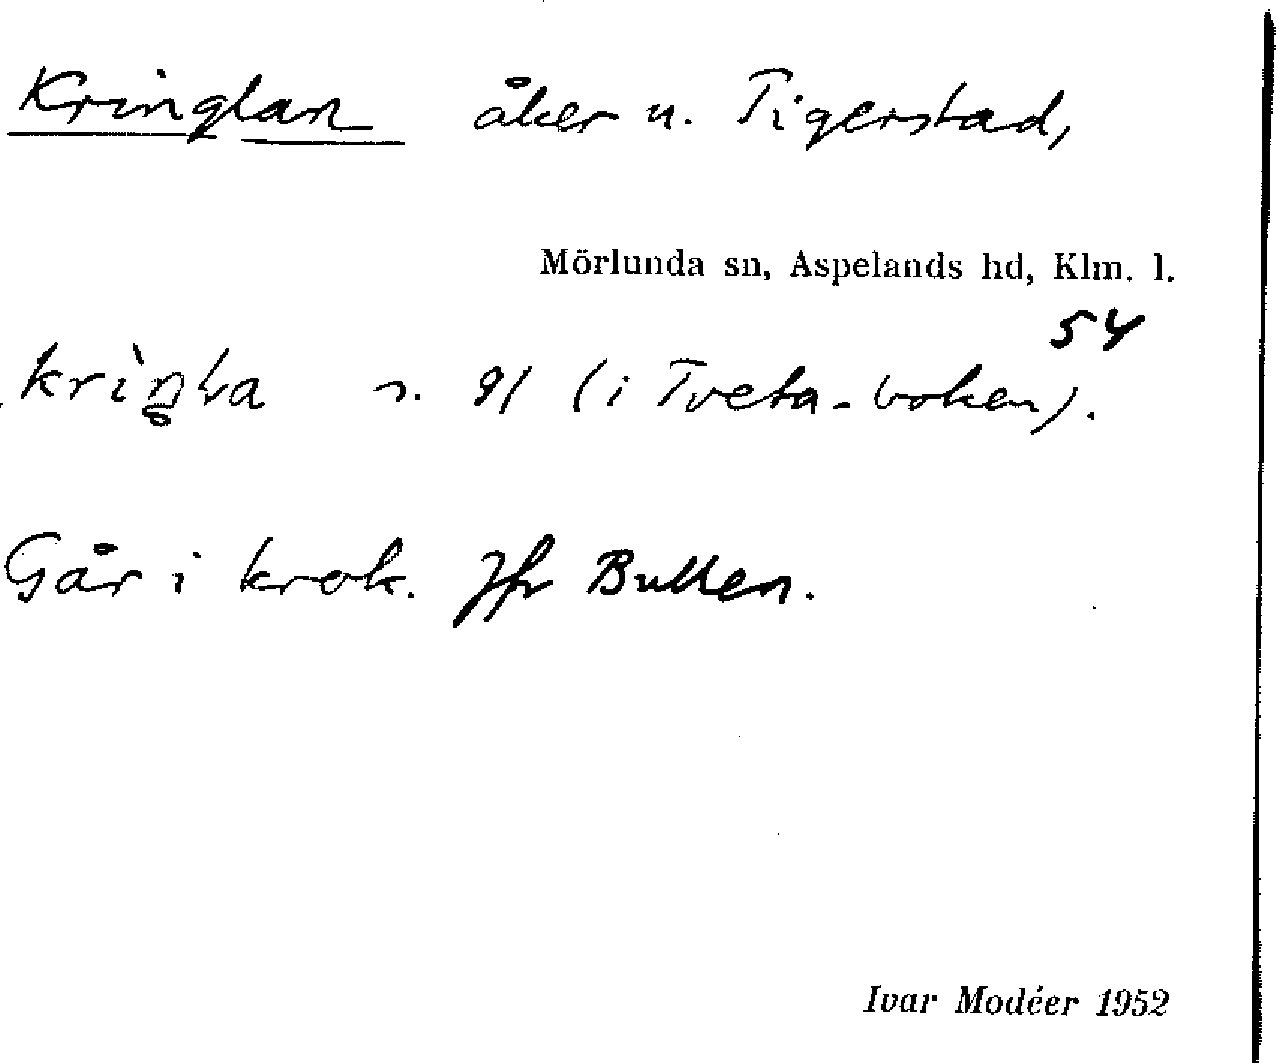 Kringlan åker u. Tigerstad,
Mörlunda sn, Aspelands hd, Klm. l.
54
s. 91 (i Tveta-boken).
Går i krok. Jfr Bullen.
Ivar Modéer 1952